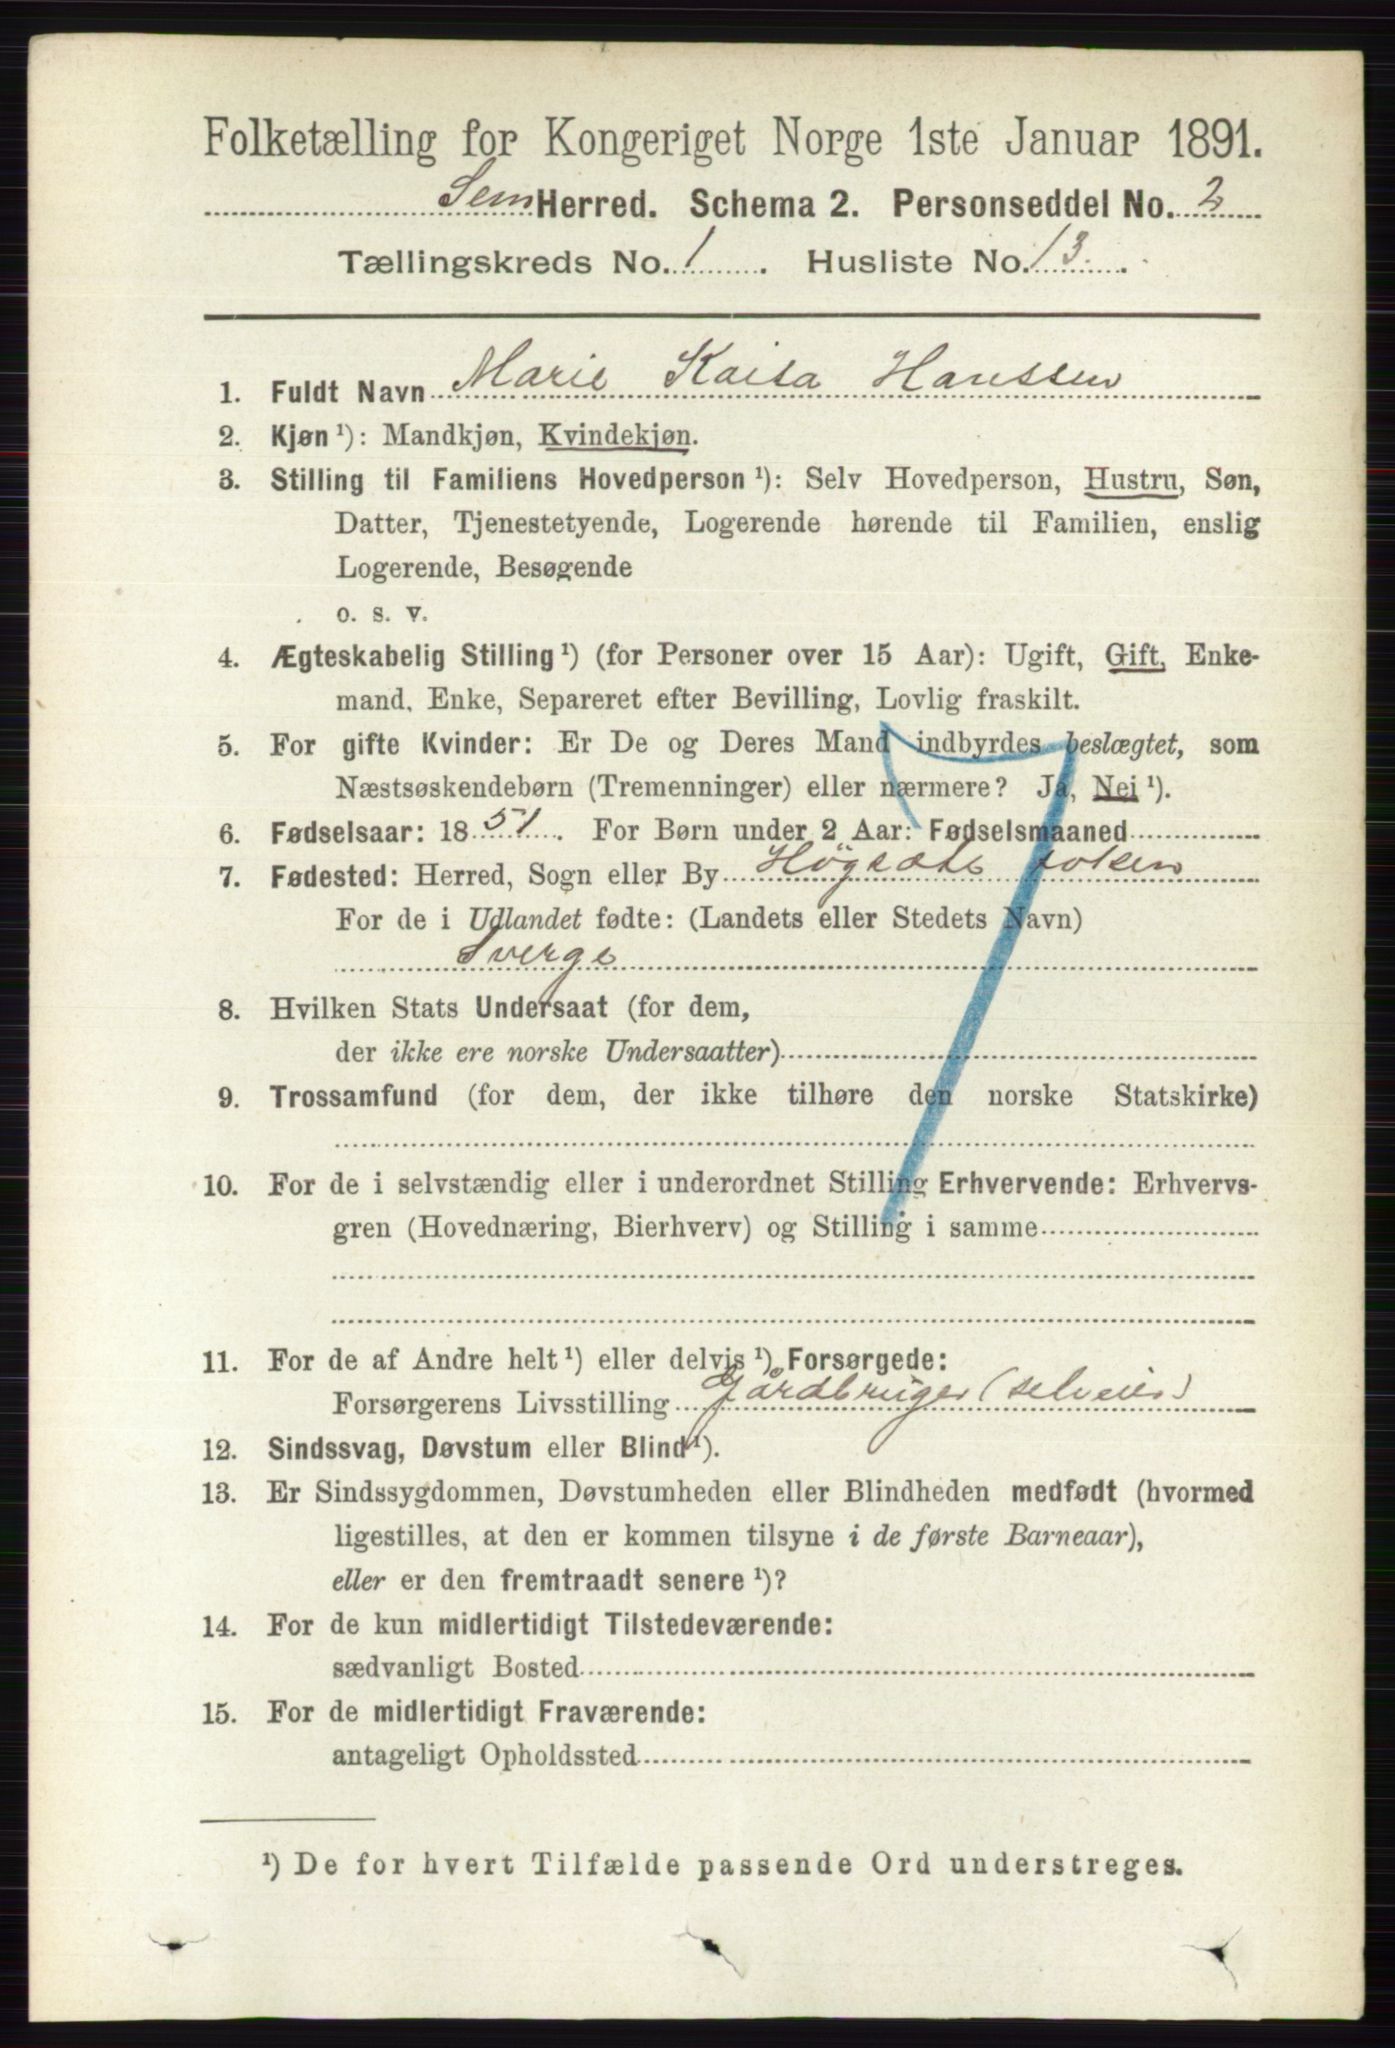 Folketælling for Kongeriget Norge 1ste Januar 1891.
Sem Herred. Schema 2. Personseddel No. 2
Tællingskreds No. 1. Husliste No. 13.
1. Fuldt Navn Marie Kaisa Hanssen
2. Kjøn ¹): Mandkjøn, Kvindekjøn.
3. Stilling til Familiens Hovedperson ¹): Selv Hovedperson, Hustru, Søn,
Datter, Tjenestetyende, Logerende hørende til Familien, enslig
Logerende, Besøgende
o. s. v.
4. Ægteskabelig Stilling ¹) (for Personer over 15 Aar): Ugift, Gift, Enke-
mand, Enke, Separeret efter Bevilling, Lovlig fraskilt.
5. For gifte Kvinder: Er De og Deres Mand indbyrdes beslægtet, som
Næstsøskendebørn (Tremenninger) eller nærmere? Ja, Nei ¹).
6. Fødselsaar: 1851. For Børn under 2 Aar: Fødselsmaaned
7. Fødested: Herred, Sogn eller By Högsäte
For de i Udlandet fødte: (Landets eller Stedets Navn)
Sverge
8. Hvilken Stats Undersaat (for dem,
der ikke ere norske Undersaatter)
9. Trossamfund (for dem, der ikke tilhøre den norske Statskirke)
10. For de i selvstændig eller i underordnet Stilling Erhvervende: Erhvervs-
gren (Hovednæring, Bierhverv) og Stilling i samme
11. For de af Andre helt ¹) eller delvis ¹) Forsørgede:
Forsørgerens Livsstilling Gårdbruger (selveier)
12. Sindssvag, Døvstum eller Blind ¹).
13. Er Sindssygdommen, Døvstumheden eller Blindheden medfødt (hvormed
ligestilles, at den er kommen tilsyne i de første Barneaar),
eller er den fremtraadt senere ¹)?
14. For de kun midlertidigt Tilstedeværende:
sædvanligt Bosted
15. For de midlertidigt Fraværende:
antageligt Opholdssted
¹) De for hvert Tilfælde passende Ord understreges.